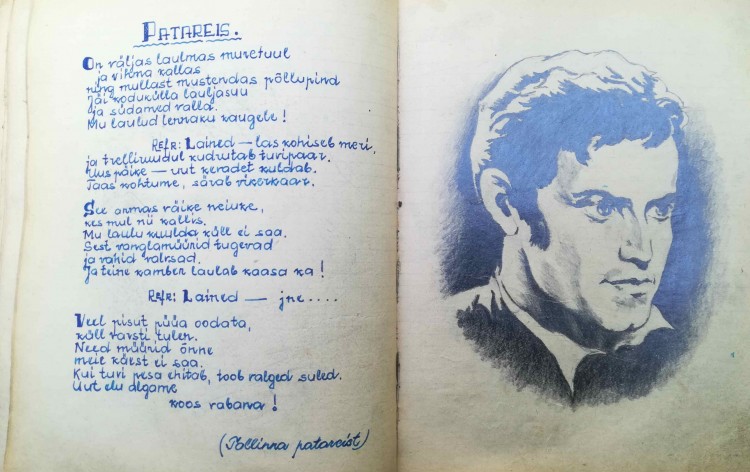 PATAREIS.
On väljas laulmas muretuul
ja vihma kallas
ning mullast mustendas põllupind
jäi kodukülla lauljasuu
ja südamed valla.
Mu laulud lennaku kaugele!
Refr: Lained — las kohiseb meri,
ja trelliuudul kudrutab tuvipaar.
uus päike — uut keradet kuldab.
Taas kohtume, särab vikerkaar.
See armas väike neiuke,
kes mul nii kallis.
Mu laulu kuulda küll ei saa.
Sest vanglamüürid tugevad
ja vahid valvsad.
Ja teine kamber laulab kaasa ka!
Refr: Lained — jne....
Veel pisut püüa oodata,
küll varsti tulen.
Need müürid õnne
meie käest ei saa.
Kui tuvi pesa ehitab, toob valged suled.
Uut elu algame
koos vabana!
(Tallinna patareist)